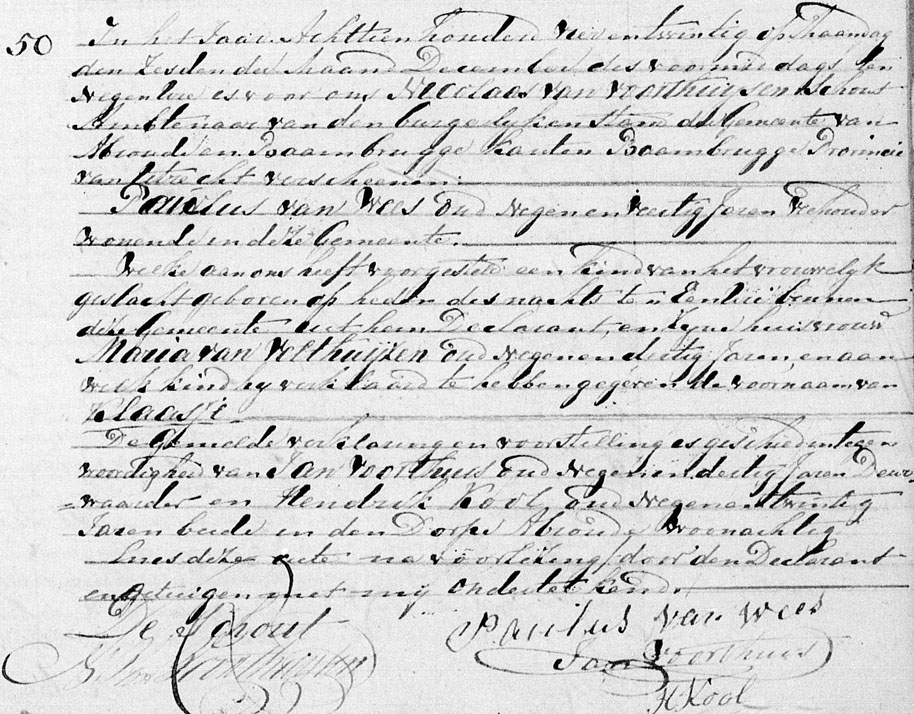 50
In het Jaar Achttien honderd vier en twintig op Maandag
den Zesden der Maand December des voormiddags ten
Negen Ure es voor ons Nicolaas van Voorthuijsen Schout
Ambtenaar van den burgerlyken Stand der Gemeente van
Abcoude en Baambrugge Kanton Baambrugge Provincie
van Utrecht verscheenen
Paulus van Wees Oud Negen en veertig Jaren
wonende in deze Gemeente.
Welke aan ons heeft voorgesteld een Kind van het vrouwelyk
geslacht geboren op heden des nachts ten Een Ure binnen
deze Gemeente uit hem Declarant, en Zyne huisvrouw
Maria van Velthuijzen oud Negen en dertig Jaren en aan
welk kind hy verklaard te hebben gegeven de voornaam van
Klaasje
De Gemelde verklaring en voorstelling es geschied in tegen
woordigheid van Jan Voorthuis oud Negen en dertig Jaren Deur
=waarder en Hendrik Kool oud Negen en twintig
Jaren beide in den Dorpe Abcoude woonachtig
en es deze acte na voorlezing door den Declarant
en getuigen met mij ondertekend.
De Schout
Voorthuijsen
Paulus van Wees
Jan Voorthuis
H. Kool